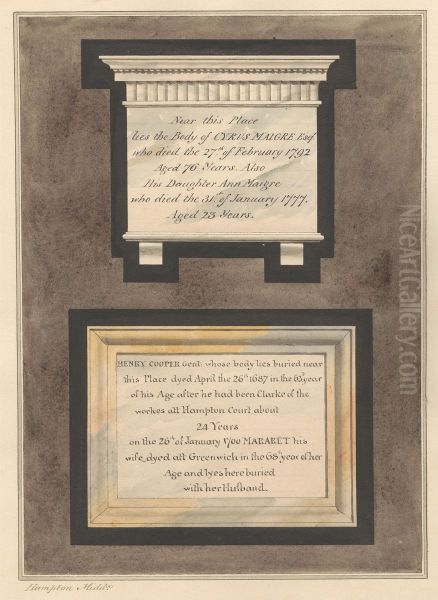 Near this Place
lies the Body of CYRVS MAIGRE Esqr
who died the 27th of February 1792
Aged 76 Years. Also
His Daughter Ann Maigre
who died the 31st of January 1777.
Aged 23 Years.
HENRY COOPER Gent: whose body lies buried near
this Place dyed April the 26th 1687 in the 63d year
of his Age after he had been Clarke of the
workes att Hampton Court about
24 Years
on the 26th of January 1700 MARARET his
wife dyed att Greenwich in the 68th year of her
Age and lyes here buried
with her Husband.
Hampton Middx
NiceArtGallery.com